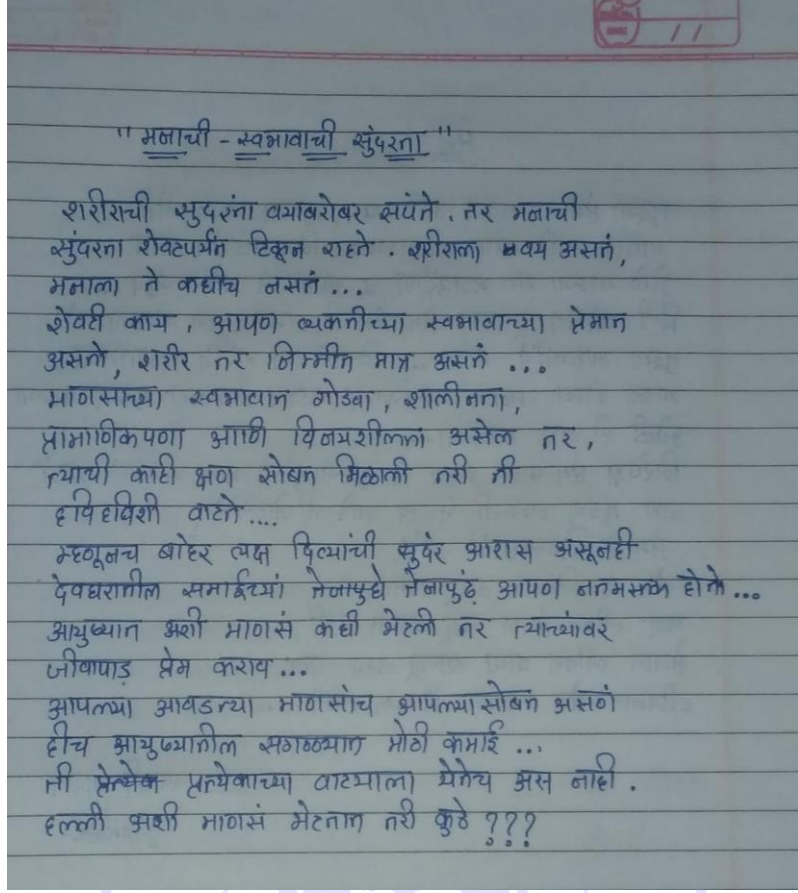 " मनाची - स्वभावाची सुंदरता "
शरीराची सुदरंता वयाबरोबर संपते. तर मनाची
सुंदरता शेवटपर्यंत टिकून राहते. शरीराला वय असतं,
मनाला ते कधीच नसतं...
शेवटी काय, आपण व्यक्तीच्या स्वभावाच्या प्रेमात
असतो, शरीर तर निम्मीत मात्र असतं ...
माणसाच्या स्वभावात गोडवा, शालीनता,
प्रामाणिकपणा आणि विनयशीलता असेल तर,
त्याची काही क्षण सोबत मिळाली तरी ती
हविहविशी वाटते....
म्हणूनच बाहेर लक्ष दिव्यांची सुदंर आरास असूनही
देवघरातील समाईच्यां तेजापुधे तेजापुढं आपण नतमस्तक होतो...
आयुष्यात अशी माणसं कधी भेटली तर त्याच्यांवर
जीवापाड प्रेम कराव...
आपल्या आवडत्या माणसांच आपल्यासोबत असणं
हीच आयुष्यातील सगळ्यात मोठी कमाई ...
ती प्रेत्येक प्रत्येकाच्या वाटयाला येतेच अस नाही.
हल्ली अशी माणसं भेटतात तरी कुठे ???